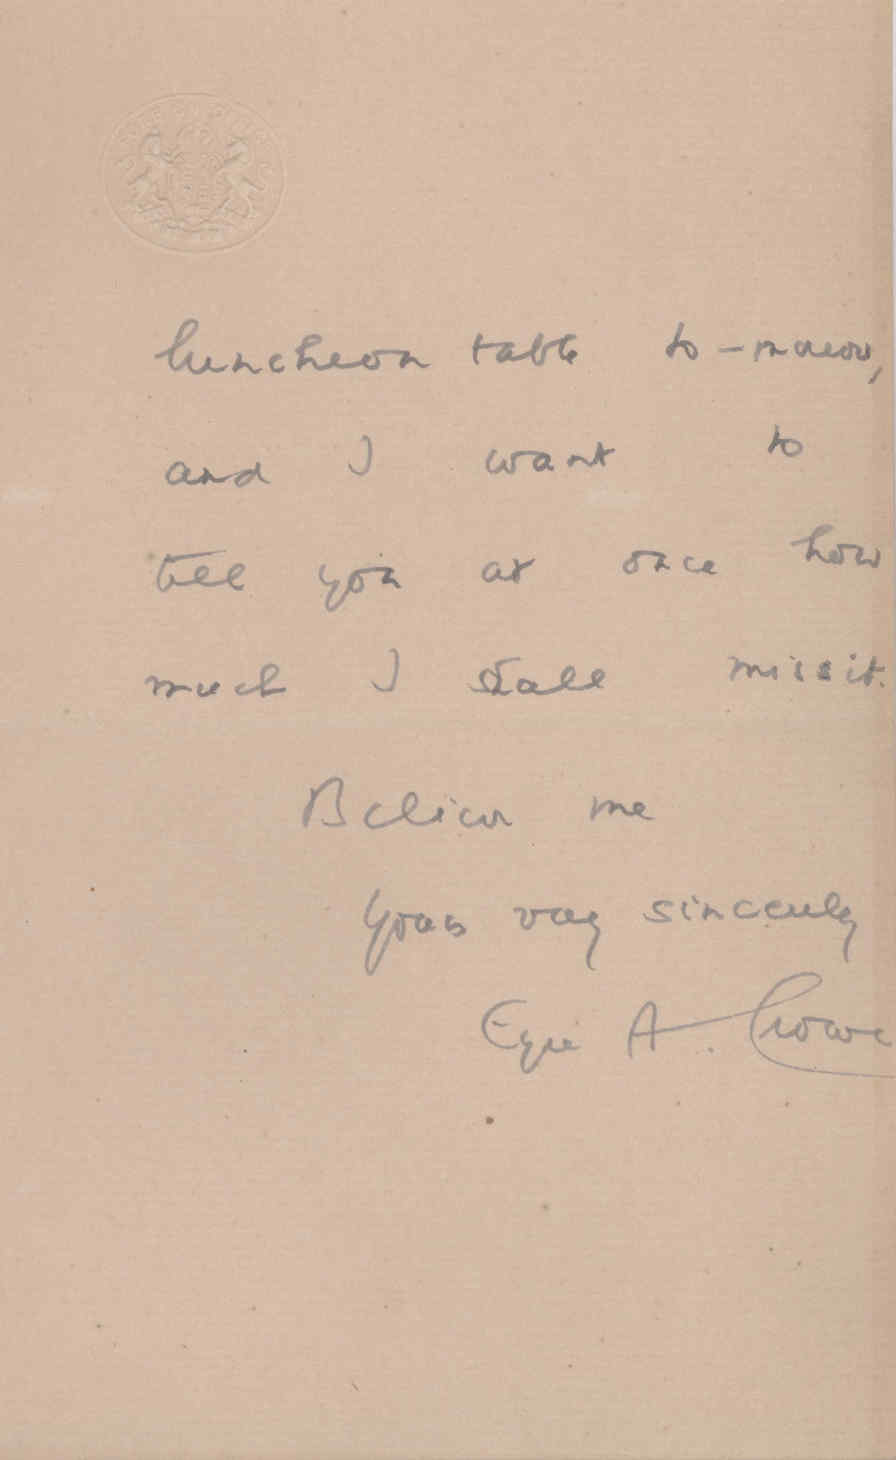 luncheon table to-morrow,
and I want to
tell you at once how
much I shall miss it.
Believe me
Yours very sincerely
Eyre A. Crowe